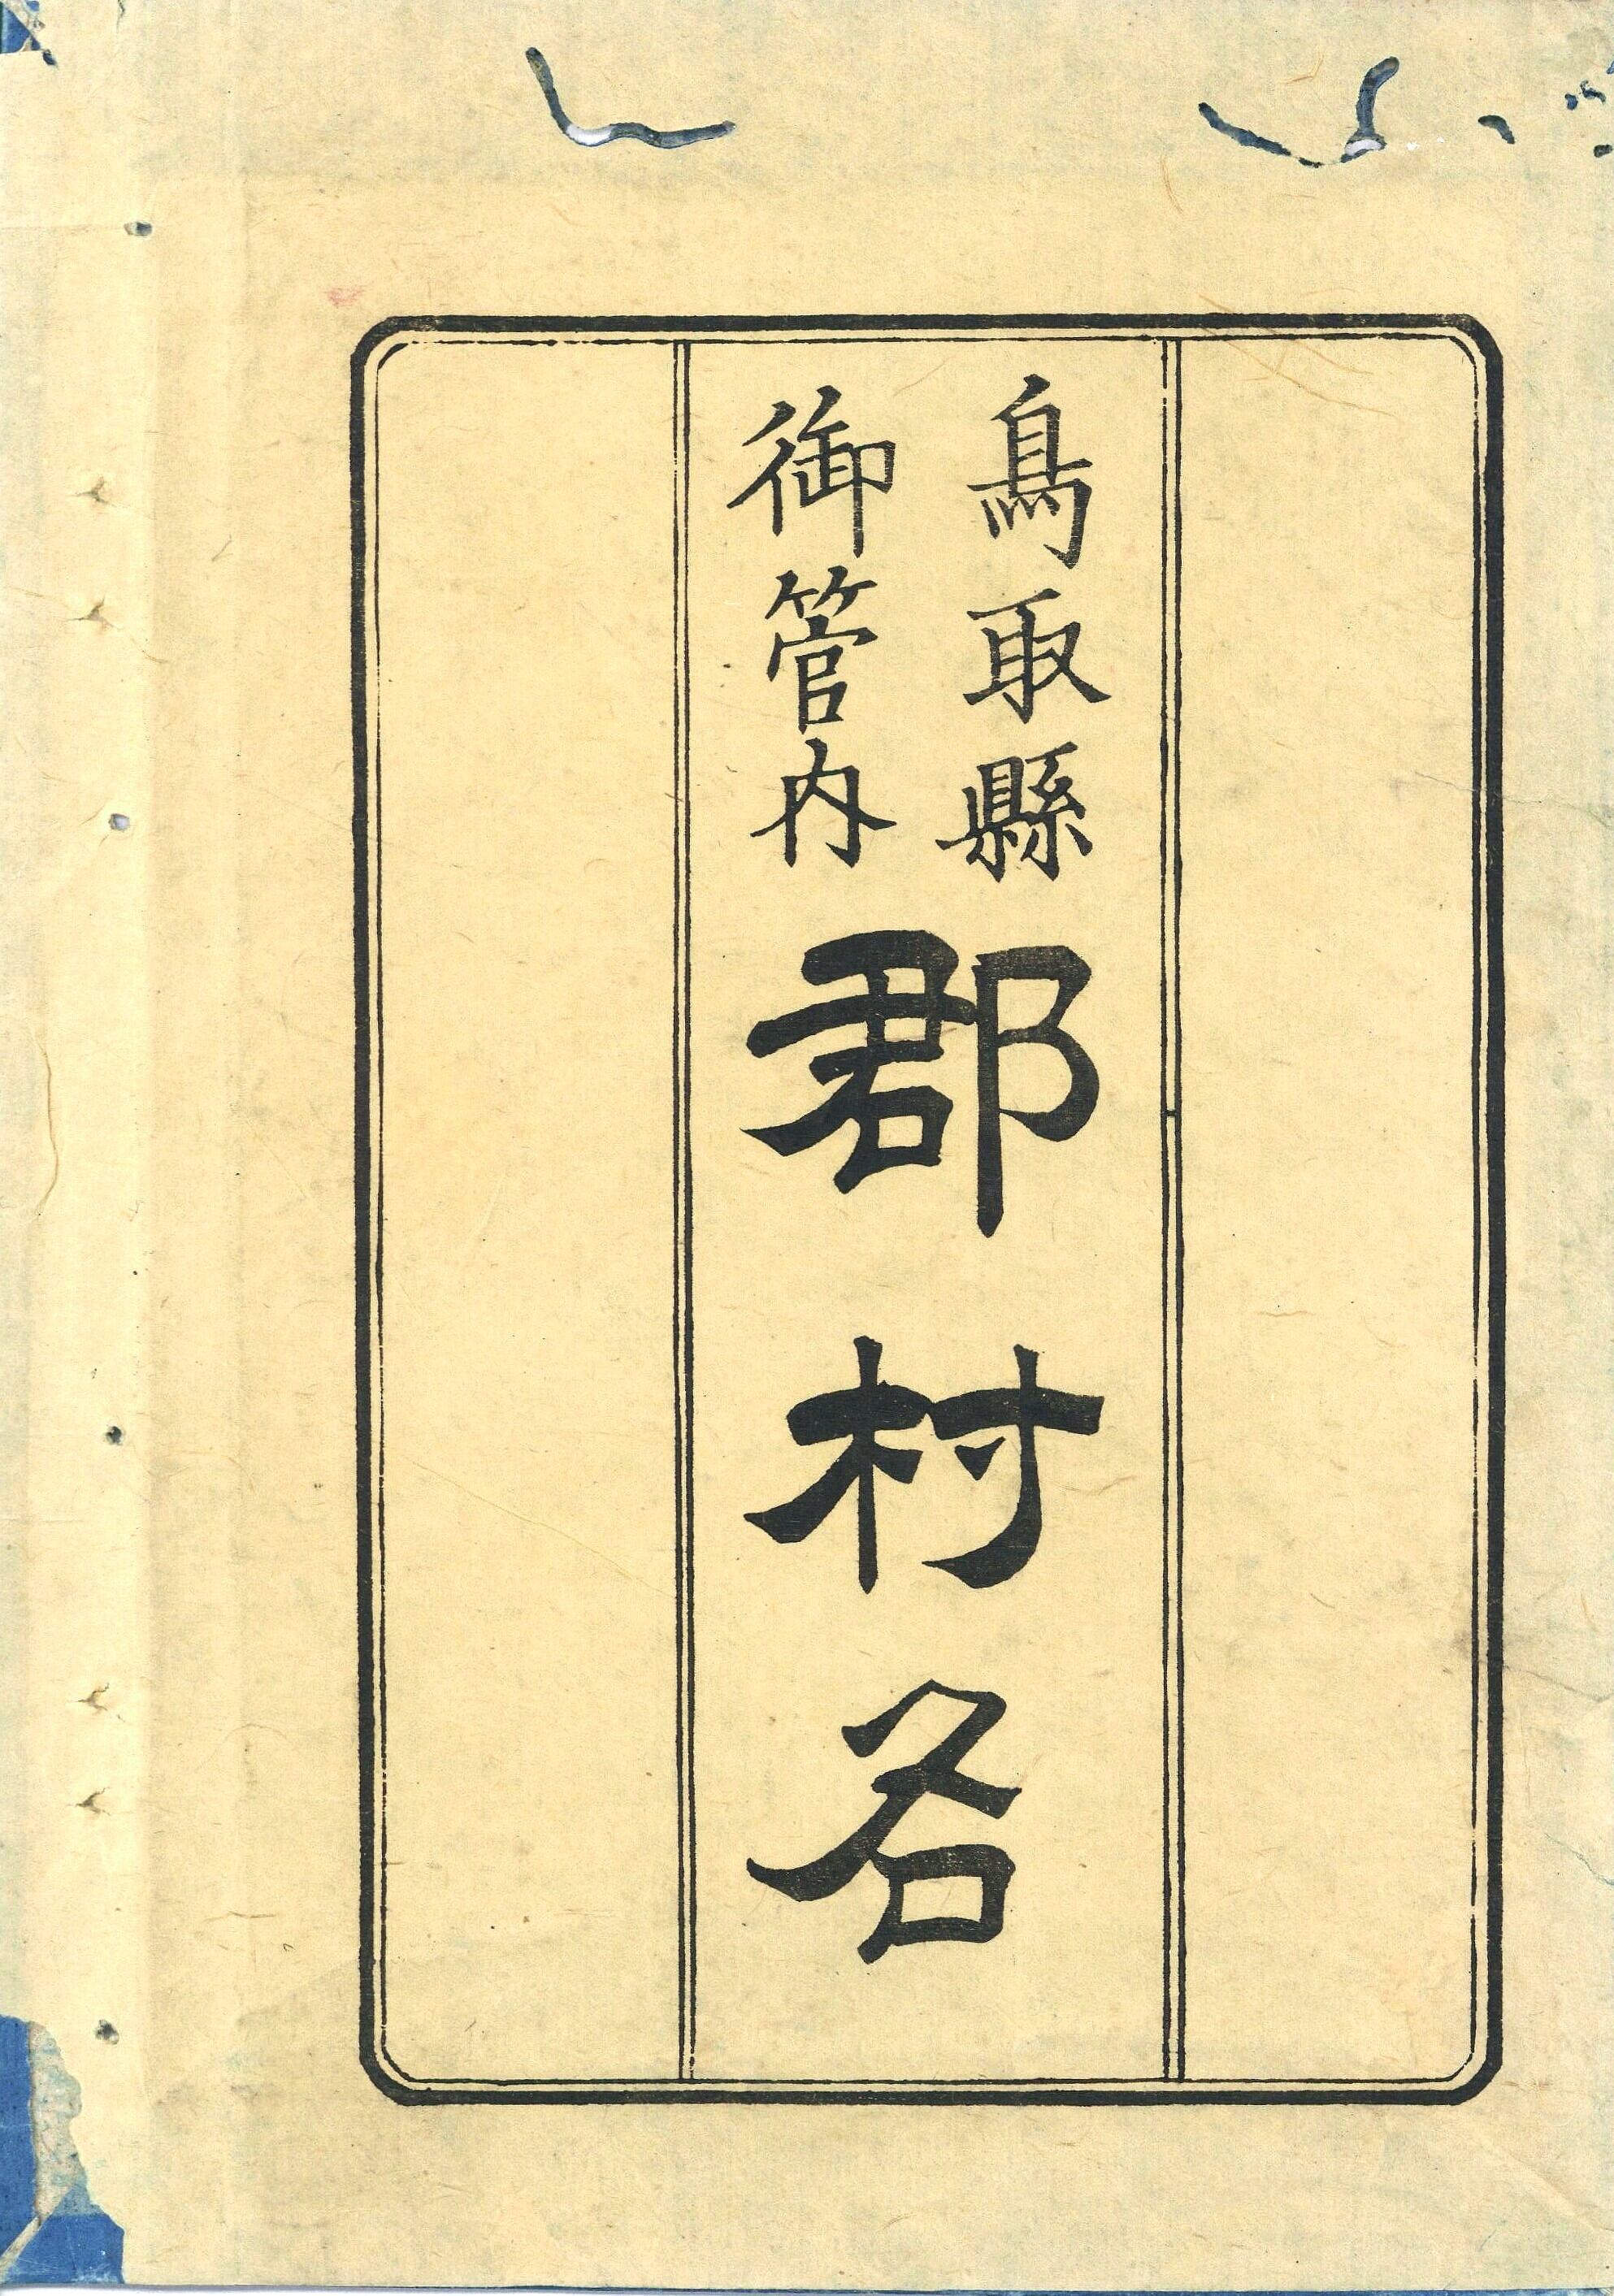 鳥取縣
御管内
郡村名